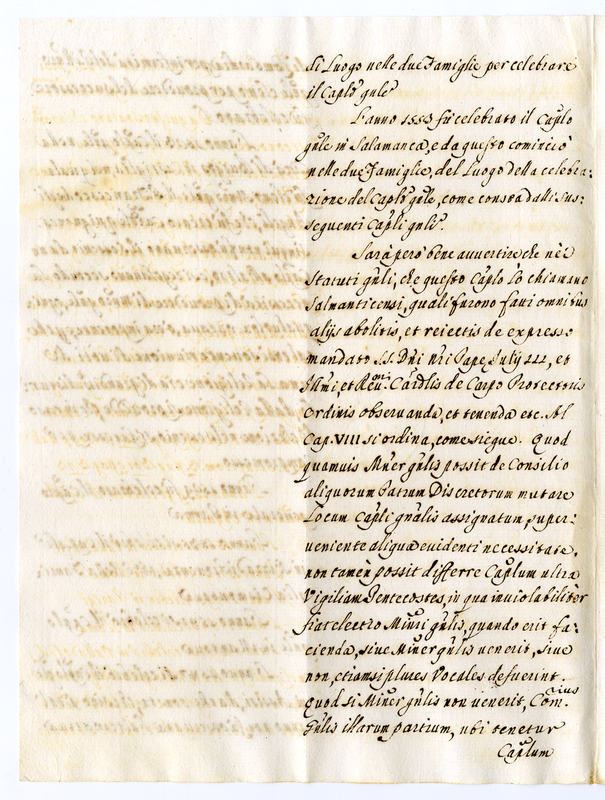 di Luogo nelle due Famiglie per celebrare
il Caplo gnle
L'anno 1553 fù celebrato il Caplo
gnle in Salamanca, e da questo cominciò
nelle due Famiglie, del Luogo della celebra:
zione del Caplo gnle, come consta dalli sus:
seguenti Capli gnli.
Sarà però bene avvertire che nei
Statuti gnli, che questo Caplo lo chiamano
Salmanticensi, quali furono favi omnibus
alijs abolitis, et reiectis de expresso
mandato SS. Dni nri Pape Julij III, et
Illmi, et Reumi Cardlis de Carpo Protectoris
Ordinis observanda, et tenenda etc. Al
Cap. VIII si ordina, come siegue. Quod
quamuis Mīner gnlis possit de Consilio
aliquorum Patrum Discretorum mutare
Locum Capli gnalis assignatum, super:
ueniente aliqua euidenti necessitate,
non tamen possit differre Caplum ultra
Vigiliam Pentecostes, in qua inviolabiliter
fiat electio Minri gnlis, quando erit fa:
cienda, siue Mīner gnlis uenerit, siue
non, etiamsi plures Vocales defuerint.
Quod si Mīner gnlis non uenerit, Comrius
Gnlis illarum partium, ubi tenetur
Caplum